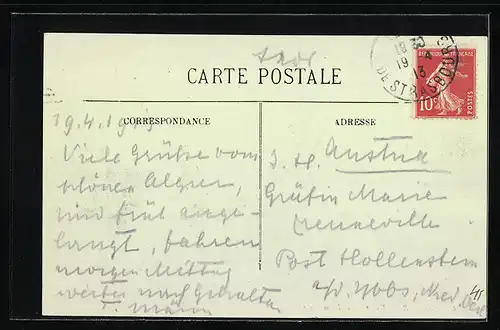 CARTE POSTALE
CORRESPONDANCE
ADRESSE
19.4.1913
Viele Grüße vom
schönen Algier,
sind früh ange-
langt, fahren
morgen Mittag
weiter nach Gibraltar
Austria
Gräfin Marie
Post Hollenstein
a/d. Ybbs,
RÉPUBLIQUE FRANÇAISE
10c
POSTES
18 30
19 4
13
DE STRASBOURG